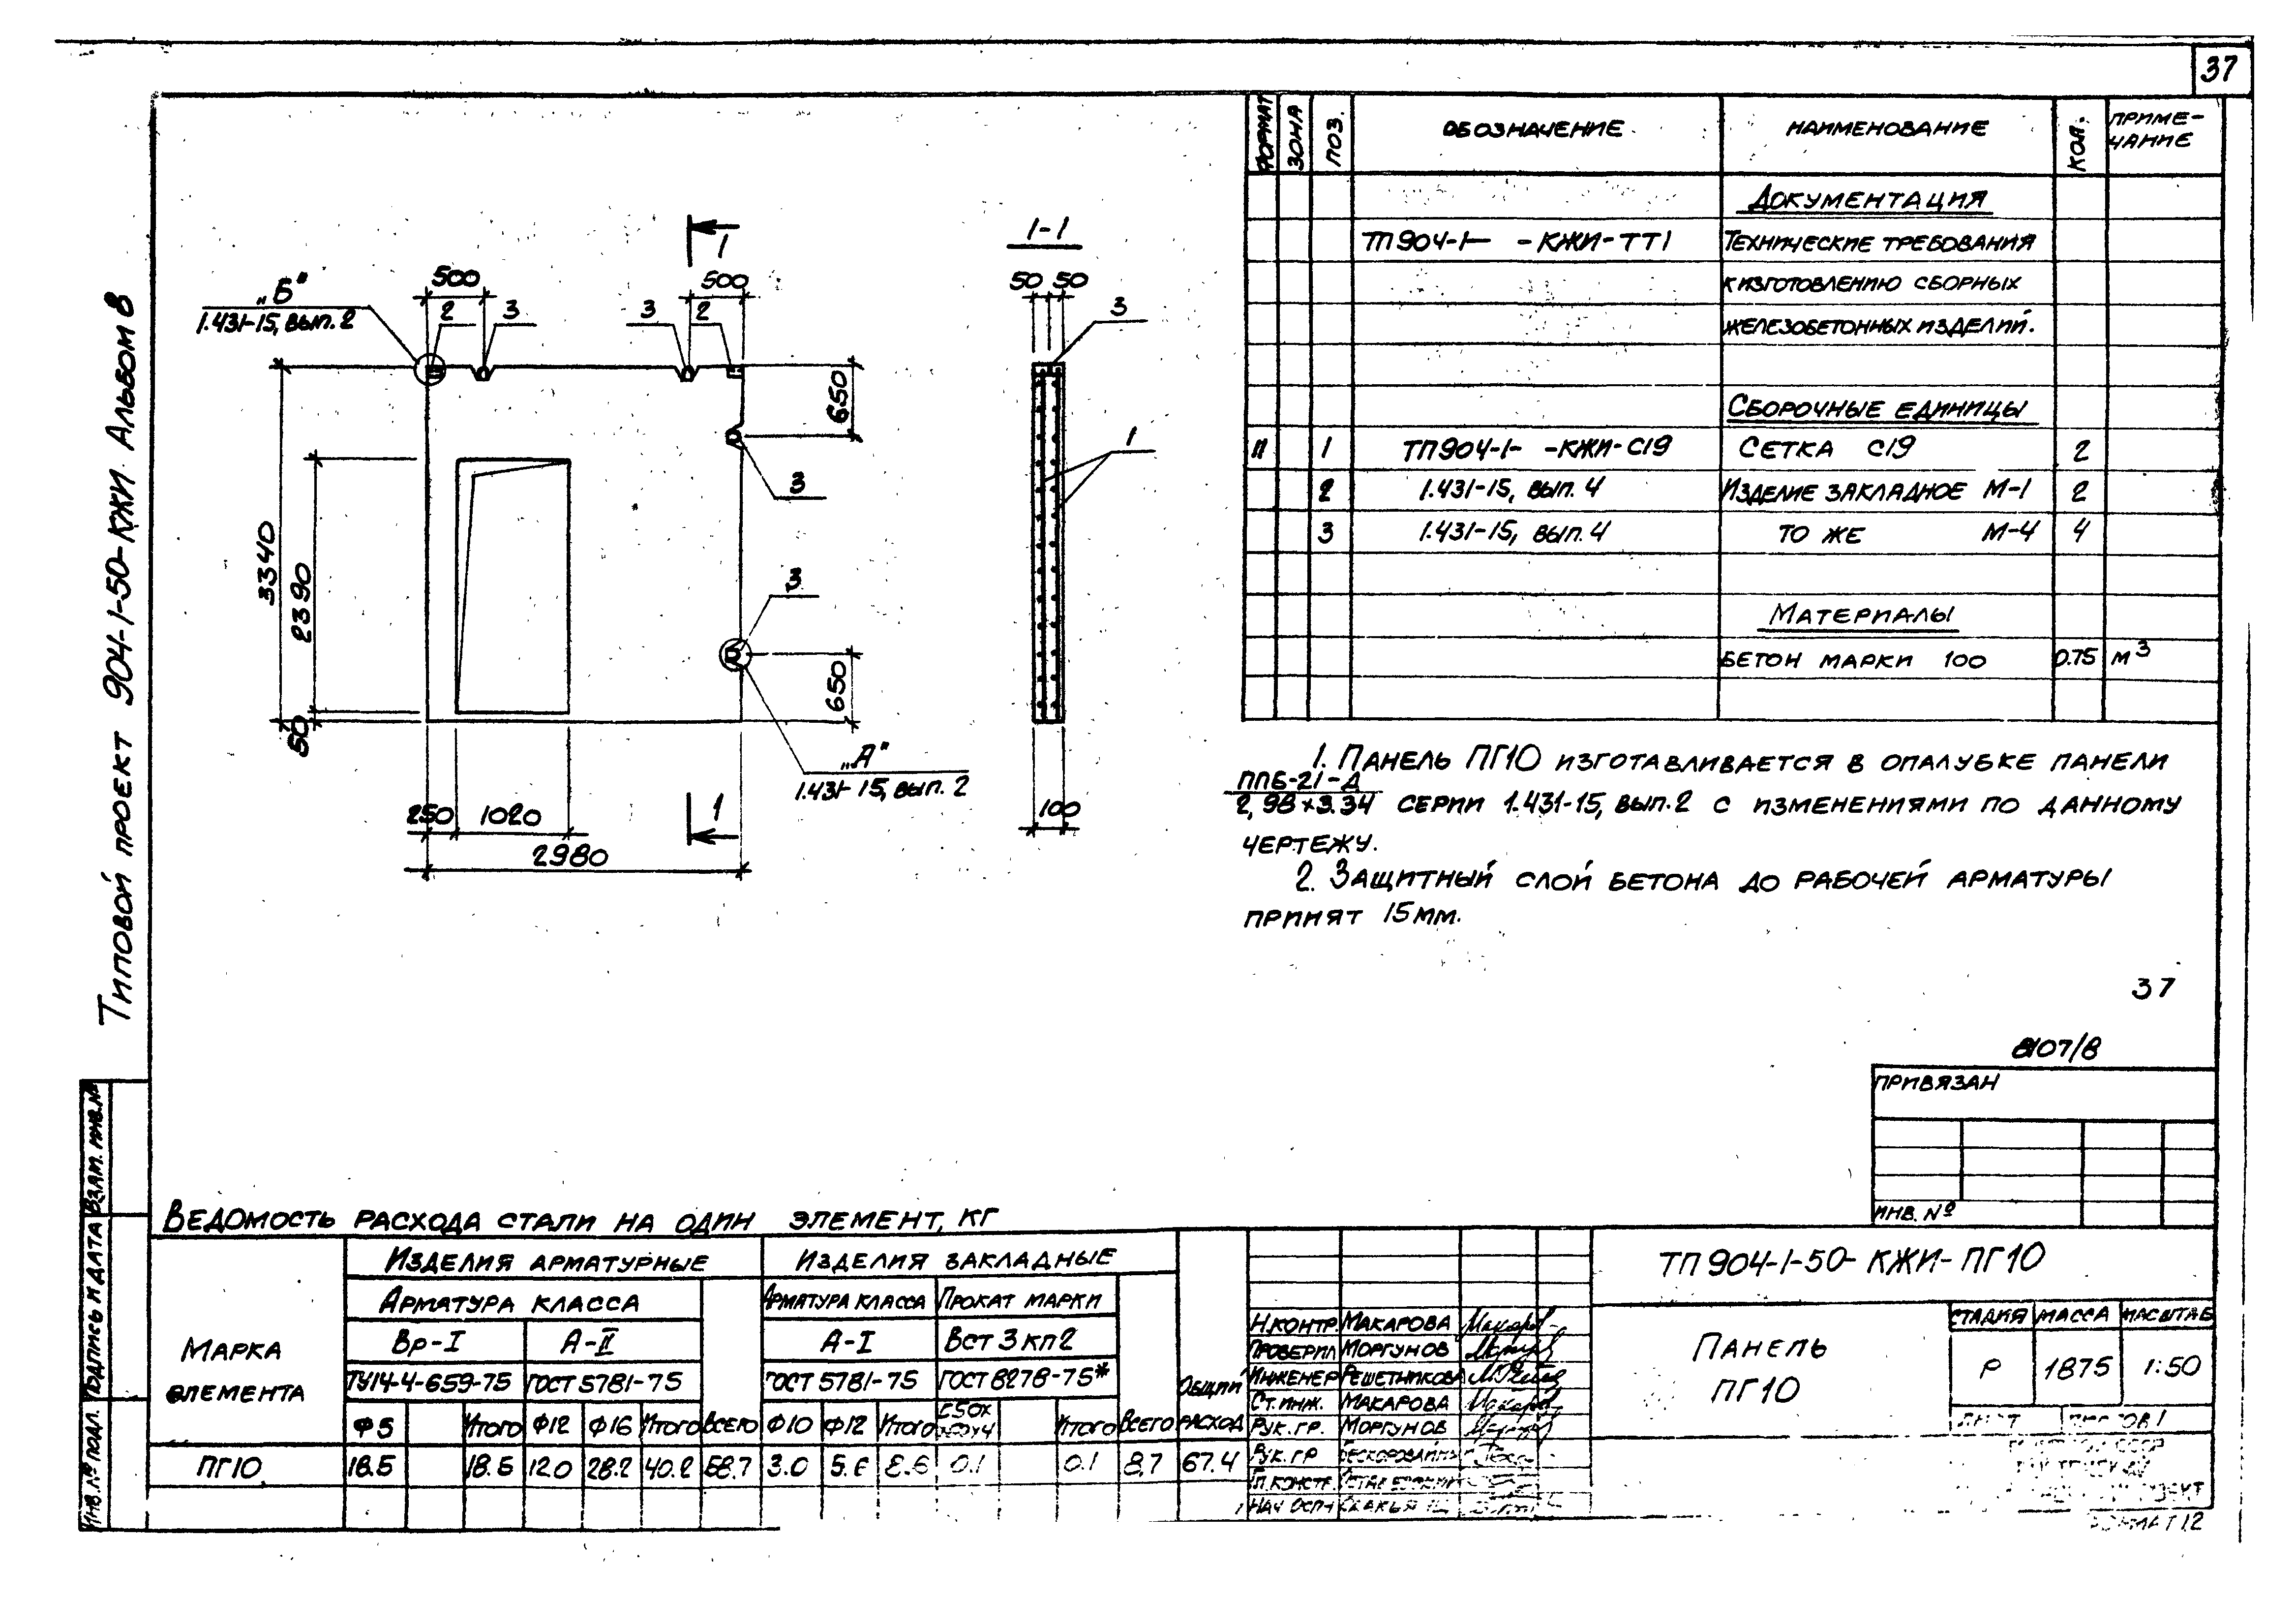 37
Типовой проект 904-1-50-КЖИ Альбом 8
1
1-1
„Б"
1.431-15, вып. 2
500
500
2
3
3
2
50 50
3
650
1
3
3340
2390
50
3
650
„А"
1.431-15, вып. 2
250
1020
2980
1
100
ФОРМАТ ЗОНА ПОЗ. ОБОЗНАЧЕНИЕ НАИМЕНОВАНИЕ КОЛ. ПРИМЕ-
ЧАНИЕ
ДОКУМЕНТАЦИЯ
ТП904-1- -КЖИ-ТТ1 ТЕХНИЧЕСКИЕ ТРЕБОВАНИЯ
К ИЗГОТОВЛЕНИЮ СБОРНЫХ
ЖЕЛЕЗОБЕТОННЫХ ИЗДЕЛИЙ.
СБОРОЧНЫЕ ЕДИНИЦЫ
П 1 ТП904-1- -КЖИ-С19 СЕТКА С19 2
2 1.431-15, вып. 4 ИЗДЕЛИЕ ЗАКЛАДНОЕ М-1 2
3 1.431-15, вып. 4 ТО ЖЕ М-4 4
МАТЕРИАЛЫ
БЕТОН МАРКИ 100 0.75 м3
1. ПАНЕЛЬ ПГ10 ИЗГОТАВЛИВАЕТСЯ В ОПАЛУБКЕ ПАНЕЛИ
ППБ-21-Д
2,98×3.34 СЕРИИ 1.431-15, ВЫП. 2 С ИЗМЕНЕНИЯМИ ПО ДАННОМУ
ЧЕРТЕЖУ.
2. ЗАЩИТНЫЙ СЛОЙ БЕТОНА ДО РАБОЧЕЙ АРМАТУРЫ
ПРИНЯТ 15 мм.
37
8107/8
ПРИВЯЗАН
ИНВ. №
Взам. инв.№
Подпись и дата
Инв. № подл.
ВЕДОМОСТЬ РАСХОДА СТАЛИ НА ОДИН ЭЛЕМЕНТ, КГ
МАРКА
ЭЛЕМЕНТА
ИЗДЕЛИЯ АРМАТУРНЫЕ ИЗДЕЛИЯ ЗАКЛАДНЫЕ
АРМАТУРА КЛАССА АРМАТУРА КЛАССА ПРОКАТ МАРКИ
Вр-I А-II А-I Вст 3 кп2
ТУ14-4-659-75 ГОСТ 5781-75 ГОСТ 5781-75 ГОСТ 8278-75*
ОБЩИЙ
РАСХОД
Ф5 Итого Ф12 Ф16 Итого Всего Ф10 Ф12 Итого Итого Всего
ПГ10 18.5 18.5 12.0 28.2 40.2 58.7 3.0 5.6 8.6 0.1 0.1 8.7 67.4
Н.КОНТР. МАКАРОВА
ПРОВЕРИЛ МОРГУНОВ
ИНЖЕНЕР РЕШЕТНИКОВА
СТ. ИНЖ. МАКАРОВА
РУК. ГР. МОРГУНОВ
РУК. ГР
ГЛ. КОНСТР.
НАЧ ОСП-1
ТП 904-1-50-КЖИ-ПГ10
ПАНЕЛЬ
ПГ10
СТАДИЯ МАССА МАСШТАБ
Р 1875 1:50
ЛИСТ ЛИСТОВ 1
ФОРМАТ 12